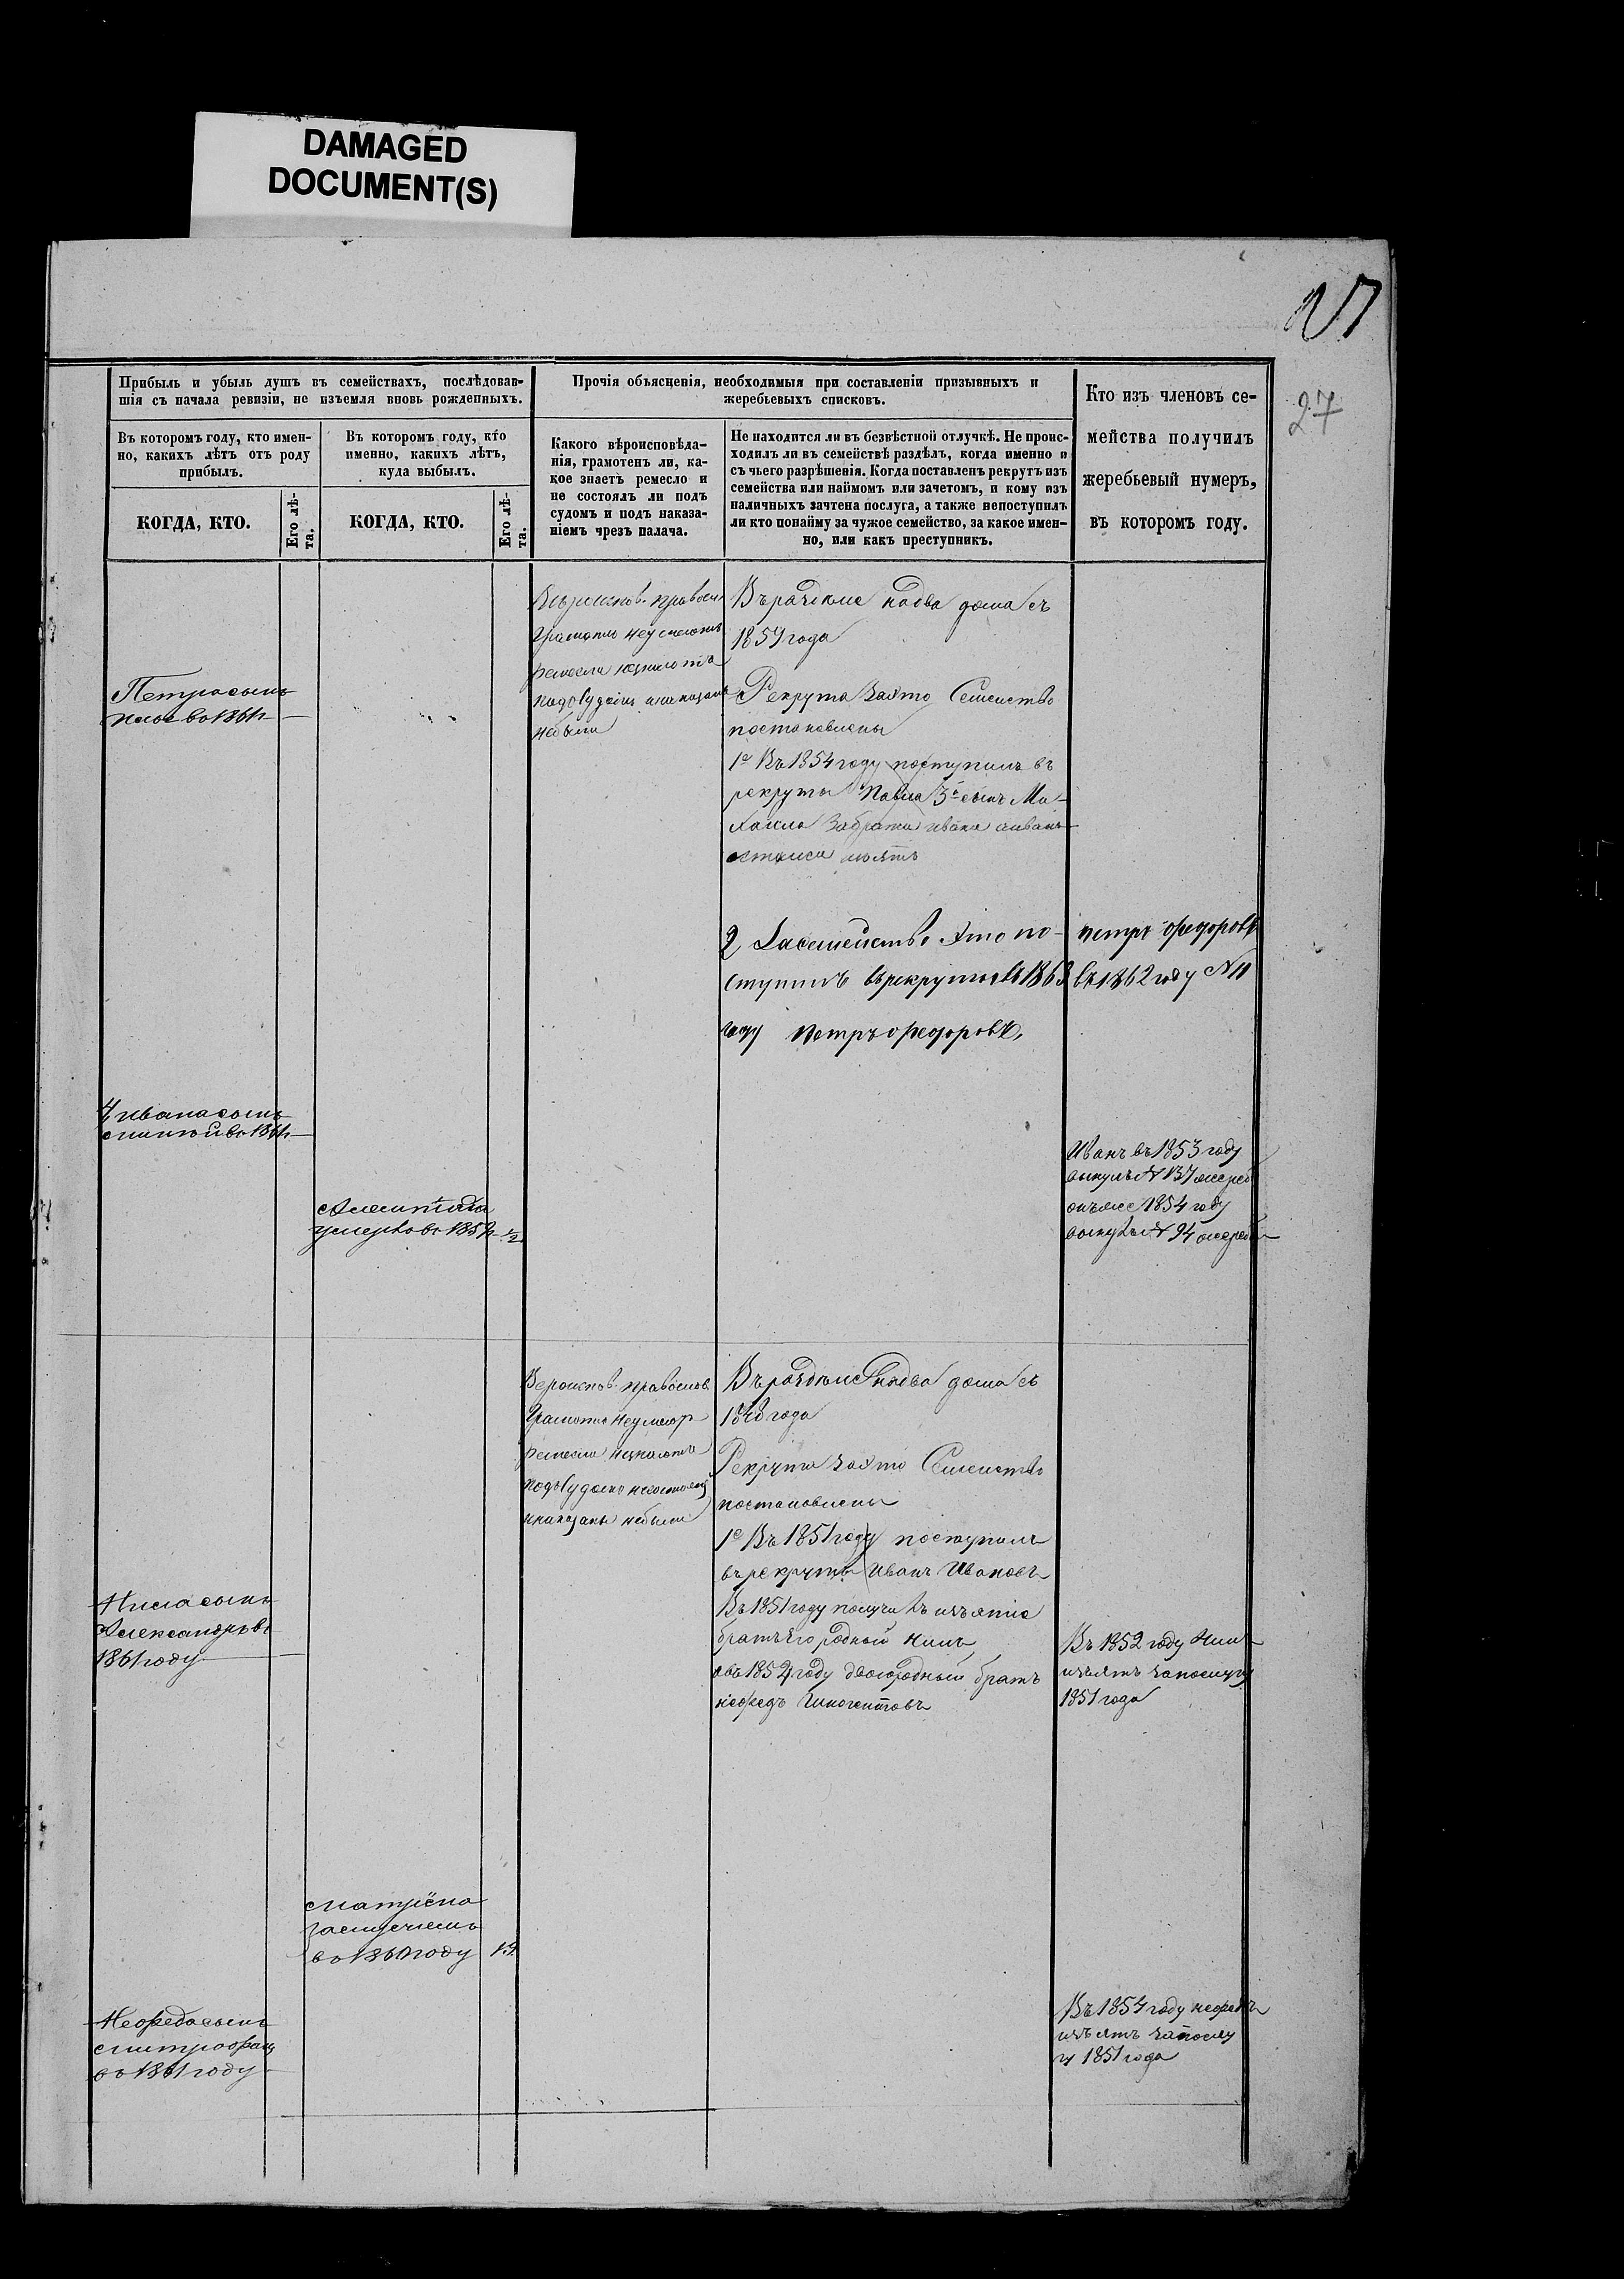 DAMAGED
DOCUMENT(S)
27
Прибыль и убыль душъ въ семействахъ, послѣдовав-
шія съ начала ревизіи, не изъемля вновь рожденныхъ.
Прочія объясненія, необходимыя при составленіи призывныхъ и
жеребьевыхъ списковъ.
Кто изъ членовъ се-
мейства получилъ
жеребьевый нумеръ,
въ которомъ году.
Въ которомъ году, кто имен-
но, какихъ лѣтъ отъ роду
прибылъ.
Въ которомъ году, кто
именно, какихъ лѣтъ,
куда выбылъ.
Какого вѣроисповѣда-
нія, грамотенъ ли, ка-
кое знаетъ ремесло и
не состоялъ ли подъ
судомъ и подъ наказа-
ніемъ чрезъ палача.
Не находится ли въ безвѣстной отлучкѣ. Не проис-
ходилъ ли въ семействѣ раздѣлъ, когда именно и
съ чьего разрѣшенія. Когда поставленъ рекрутъ изъ
семейства или наймомъ или зачетомъ, и кому изъ
наличныхъ зачтена послуга, а также непоступилъ
ли кто понайму за чужое семейство, за какое имен-
но, или какъ преступникъ.
КОГДА, КТО.
Его лѣ-
та.
КОГДА, КТО.
Его лѣ-
та.
Петра сынъ
во 1861 г
Вѣроиспов. правосл
Грамотѣ неумеютъ
ремесла незнаютъ
небыли
Въ разделе на два дома съ
1859 года
Рекрута за это Семейство
постановлены
1е Въ 1854 году поступилъ въ
рекруты Павла 3й сынъ Ми-
хаила За брата Ивана
2 За семейство это по-
ступилъ въ рекруты въ 1863
году Петръ Федоровъ,
Петръ Федоровъ
въ 1862 году N 11
4 Ивана сынъ
во 1861 г
умерла во 1859 г 1/2
Иванъ въ 1853 году
вынулъ N 137 жереб
онъ же 1854 году
вынулъ N 94 жереб
Вероиспов. правослов
Грамоте неумеютъ
ремесла незнаютъ
подъ Судомъ несостояли
и наказаны небыли
Въ разделе на два дома съ
1848 года
Рекрута за это Семейство
постановлены
1е Въ 1851 году поступилъ
въ рекруты Иванъ Ивановъ
Въ 1851 году получилъ изъятие
братъ его родной Нилъ
а въ 1854 году двоюродный братъ
Нефедъ
Нила сынъ
Александръ въ
1861 году
Въ 1852 году Нилъ
изъятъ за послугу
1851 года
Матрёна
замужемъ
во 1860 году 19
Нефеда сынъ
Митрофанъ
во 1861 году
Въ 1854 году Нефедъ
изъятъ за послу
гу 1851 года